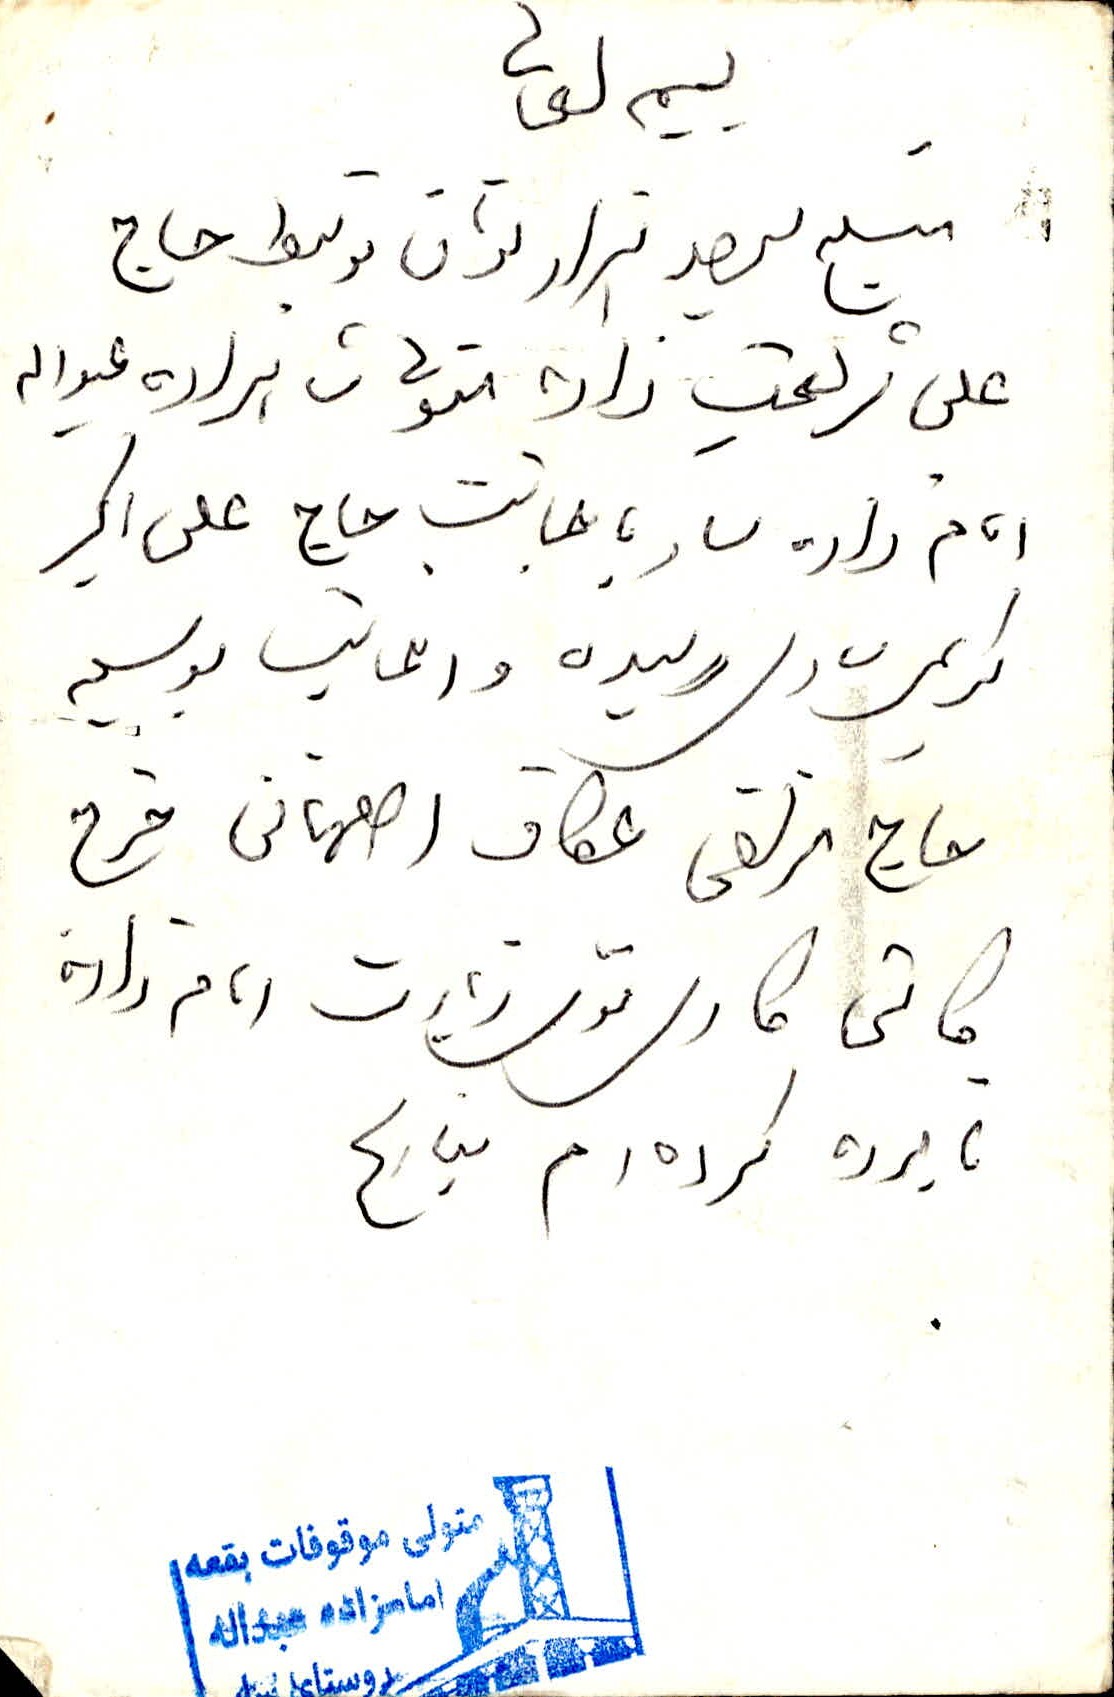 بسمه تعالی
مبلغ سیصد هزار تومان توسط حاج
علی شریعت زاده متولی برادر عبداله
امام زاده با اجابت حاج علی اکبر
کریمی رسیده و اعانت بوسیله
حاج مرتضی عکاف اصفهانی خرج
کاشی کاری توی زیارت امام زاده
نامبرده کرده ام بتاریخ
متولی موقوفات بقعه
امامزاده عبداله
روستای